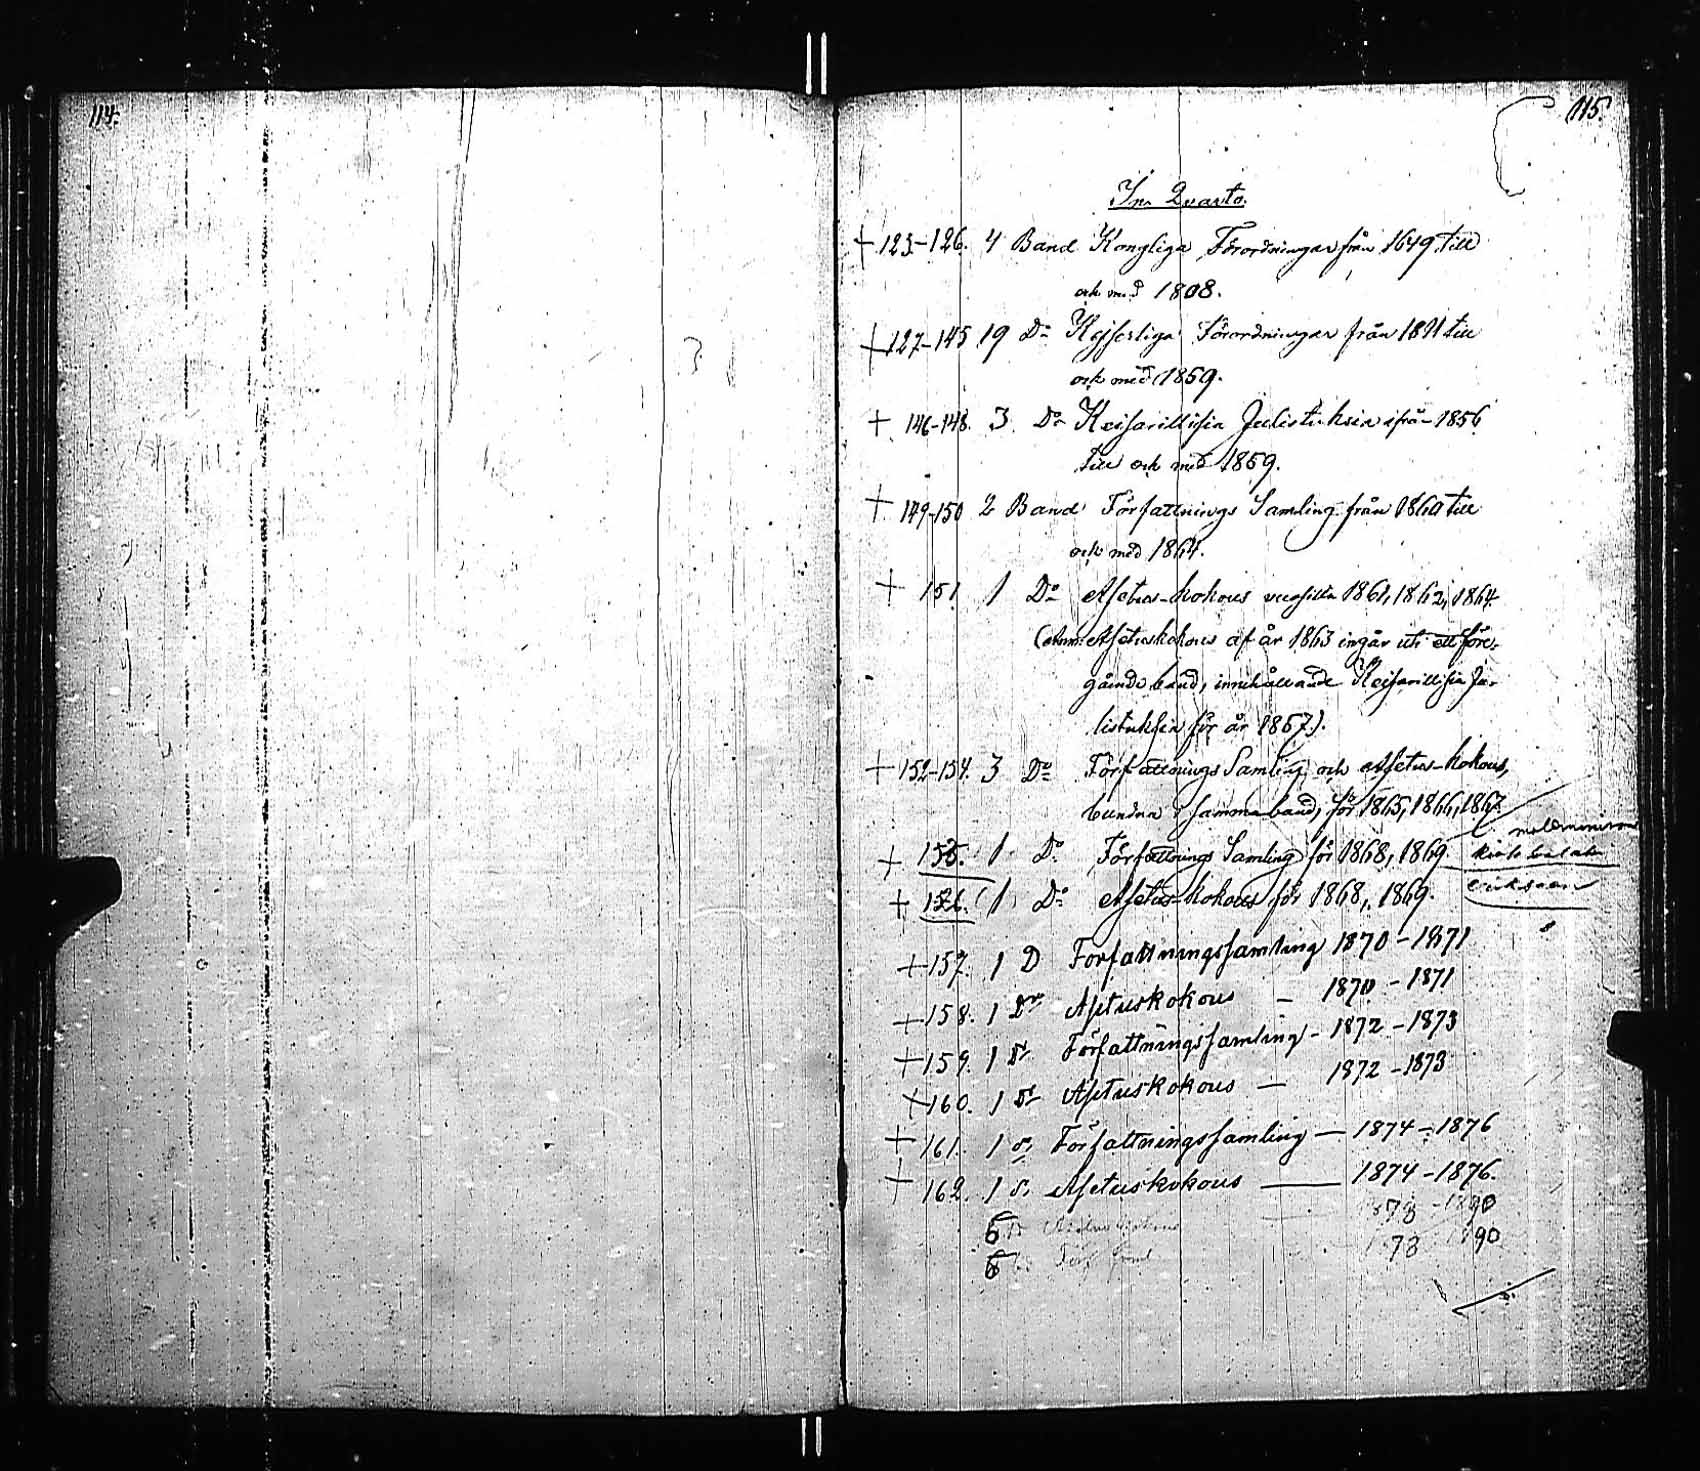 114.
115.
In Quarto.
+ 123-126. 4 Band Kongliga Förordningar från 1649 till
och med 1808.
+ 127-145 19 Do Kejserliga Förordningar från 1811 till
och med 1859.
+ 146-148. 3. Do Keisarillisia Julistuksia ifrån 1856
till och med 1859.
+ 149-150 2 Band Författnings Samling från 1860 till
och med 1864.
+ 151. 1 Do Asetus-kokous vuosilta 1861, 1862, 1864.
(Anm: Asetuskokous af år 1863 ingår uti ett före-
gående band, innehållande Keisarillisia Ju-
listuksia för år 1857).
+ 152-154. 3 Do Författnings Samling och Asetus-kokous,
bundna i samma band, för 1865, 1866, 1867
+ 155. 1 Do Författnings Samling för 1868, 1869.
molemmissa
+ 156. 1 Do Asetus-kokous för 1868, 1869.
+ 157. 1 D Forfattningssamling 1870-1871
+ 158. 1 Do Asetuskokous - 1870-1871
+ 159. 1 Do Författningssamling - 1872-1873
+ 160. 1 Do Asetuskokous - 1872-1873
+ 161. 1 Do Författningssamling - 1874-1876
+ 162. 1 Do Asetuskokous - 1874-1876.
6
6